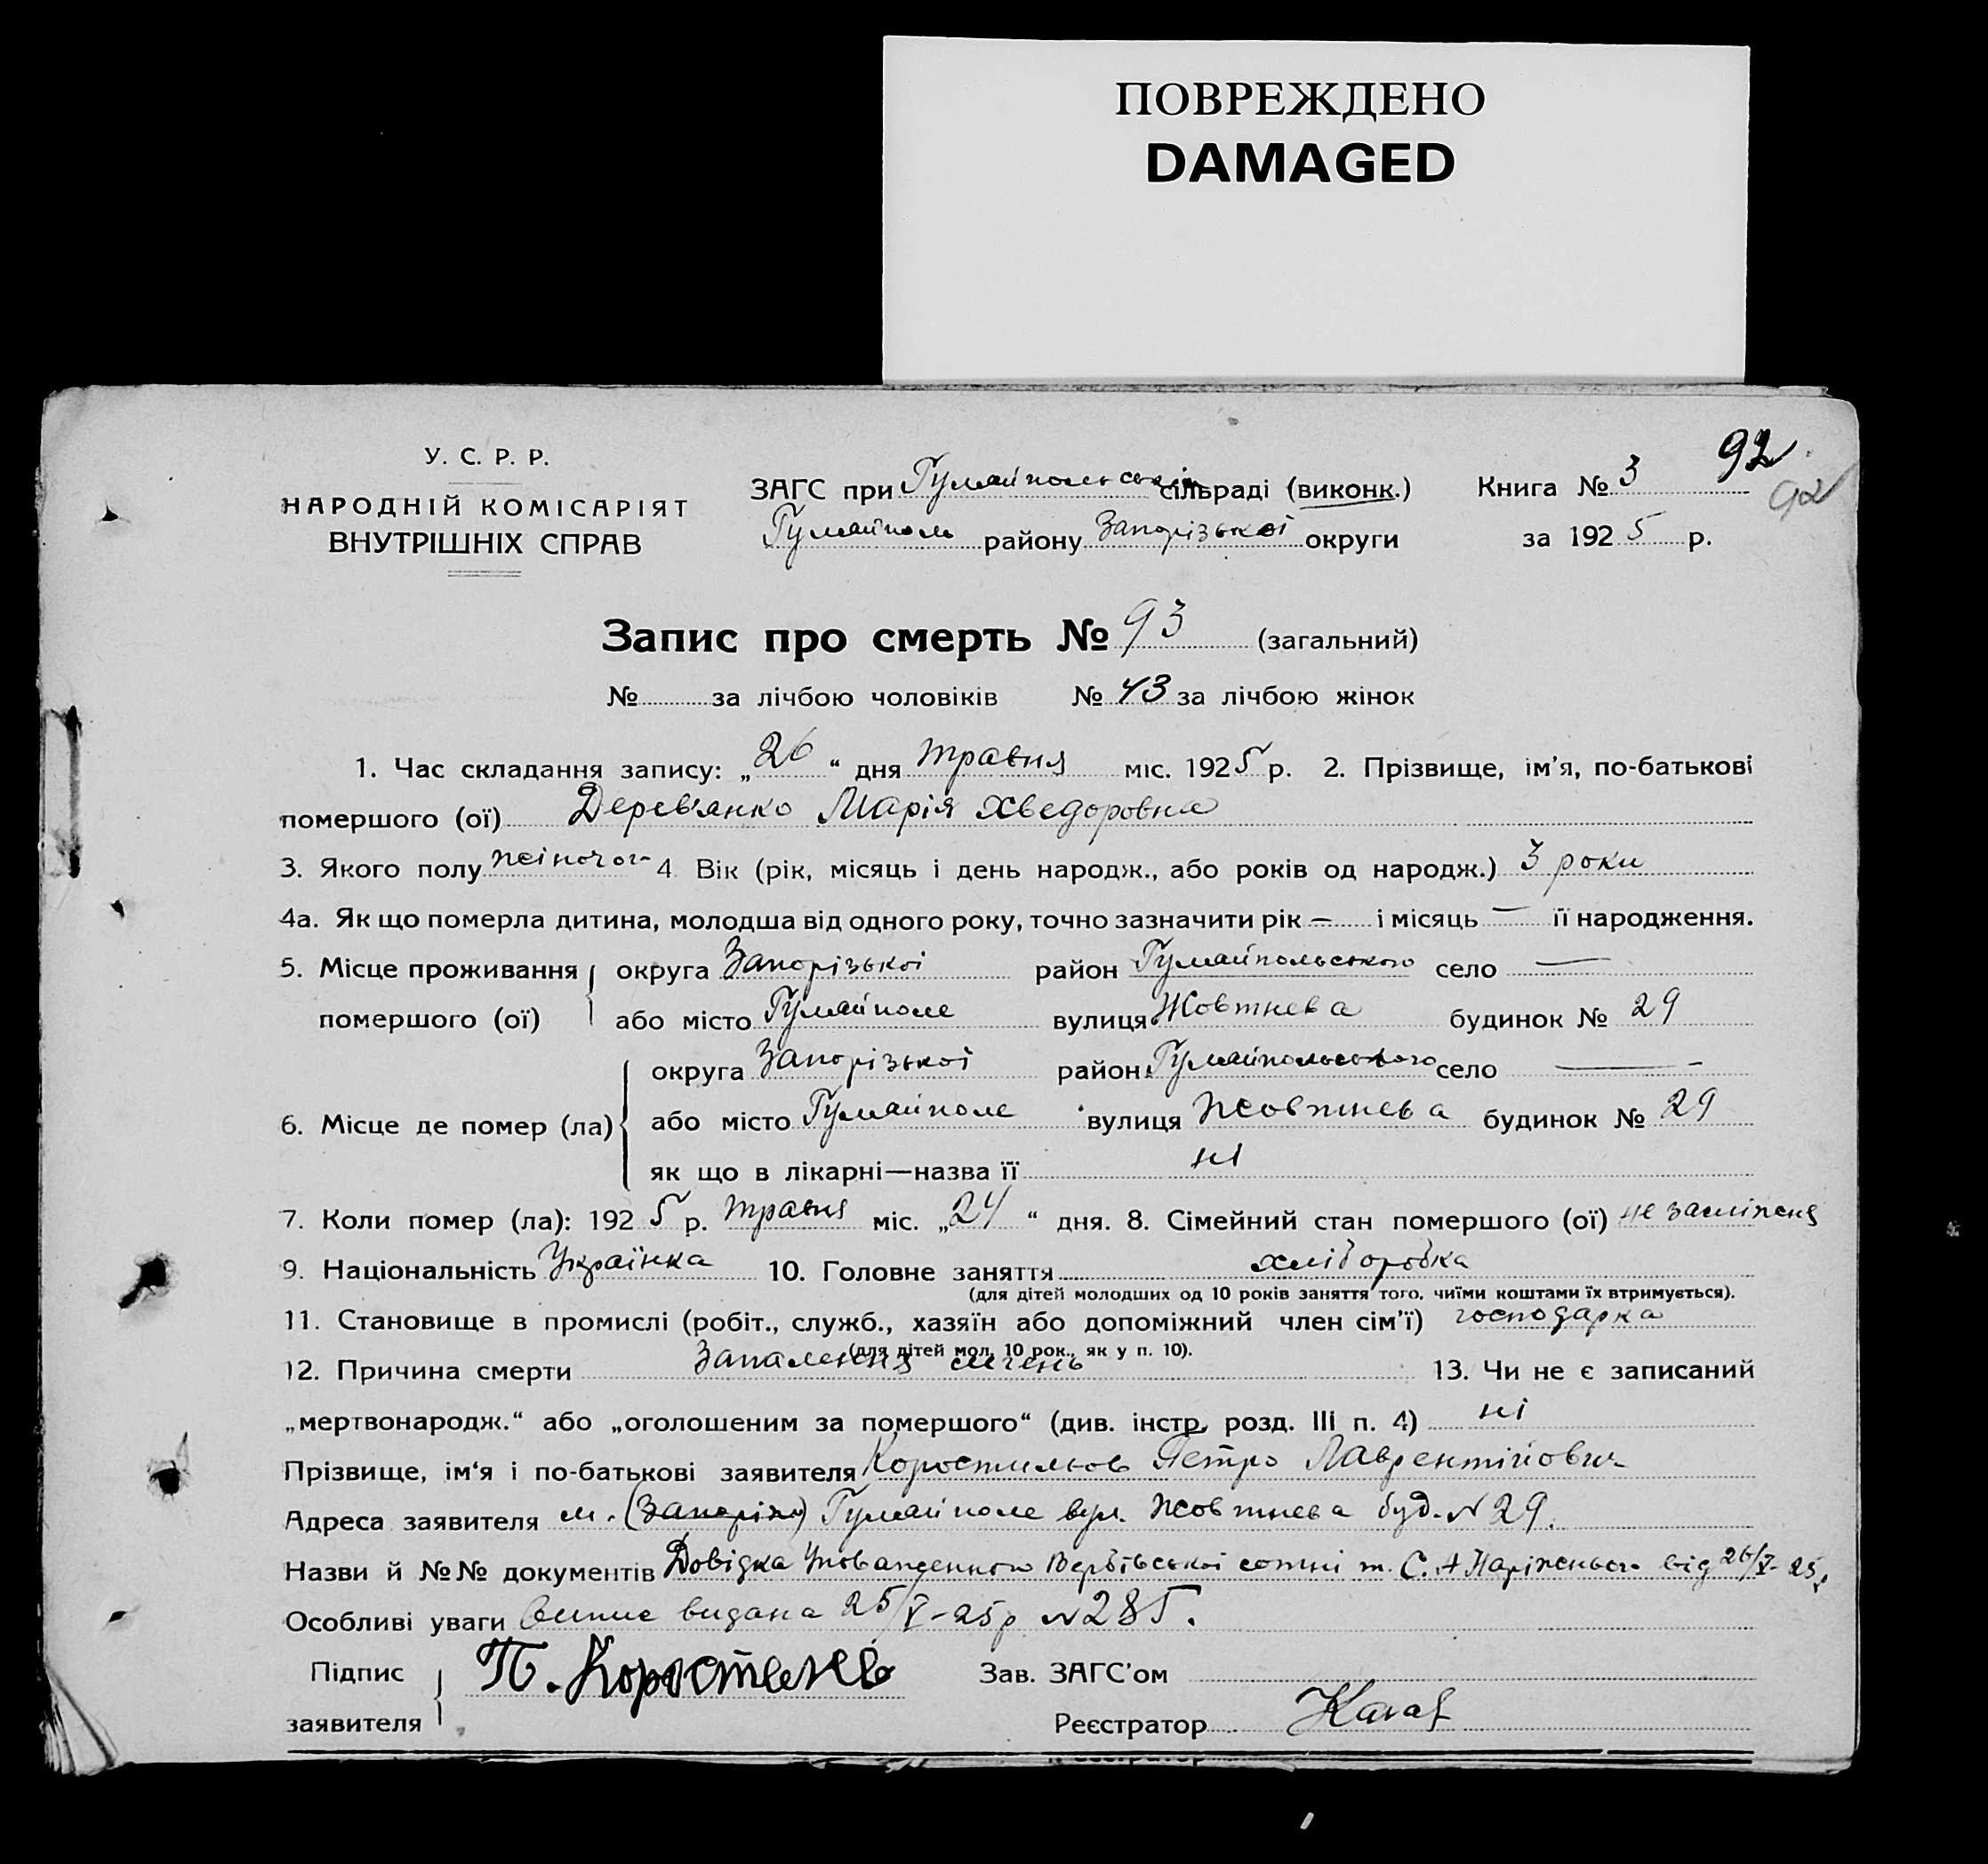 ПОВРЕЖДЕНО
DAMAGED
92
92
У. С. Р. Р.
НАРОДНІЙ КОМІСАРІЯТ
ВНУТРІШНІХ СПРАВ
ЗАГС при Гуляйпольськім сільраді (виконк.)
Гуляйполь району Запорізької округи
Книга № 3
за 1925 р.
Запис про смерть № 93 (загальний)
№ за лічбою чоловіків № 43 за лічбою жінок
1. Час складання запису: „26“ дня травня міс. 1925 р. 2. Прізвище, ім'я, по-батькові
помершого (ої) Дерев'янко Марія Хведоровна
3. Якого полу жіночог 4 Вік (рік, місяць і день народж., або років од народж.) 3 роки
4а. Як що померла дитина, молодша від одного року, точно зазначити рік — і місяць — її народження.
5. Місце проживання помершого (ої) округа Запорізької район Гуляйпольського село —
або місто Гуляйполе вулиця Жовтнева будинок № 29
6. Місце де помер (ла) округа Запорізької район Гуляйпольського село —
або місто Гуляйполе вулиця Жовтнева будинок № 29
як що в лікарні—назва її ні
7. Коли помер (ла): 1925 р. травня міс. „24“ дня. 8. Сімейний стан помершого (ої) не заміжня
9. Національність Українка 10. Головне заняття хліборобка
(для дітей молодших од 10 років заняття того, чиїми коштами їх втримується).
11. Становище в промислі (робіт., служб., хазяїн або допоміжний член сім'ї) господарка
(для дітей мол. 10 рок., як у п. 10).
12. Причина смерти Запалення легень 13. Чи не є записаний
„мертвонародж.“ або „оголошеним за помершого“ (див. інстр. розд. III п. 4) ні
Прізвище, ім'я і по-батькові заявителя Коростильов Петро Лаврентійович
Адреса заявителя м. (Запоріжж) Гуляйполе вул. Жовтнева буд. № 29.
Назви й №№ документів Довідка Уповаженного Вербівської сотні т. С. А Наріжнього від 26/V-25р
Особливі уваги Випис видана 25/V-25р №285.
Підпис заявителя П. Коростилев Зав. ЗАГС'ом
Реєстратор